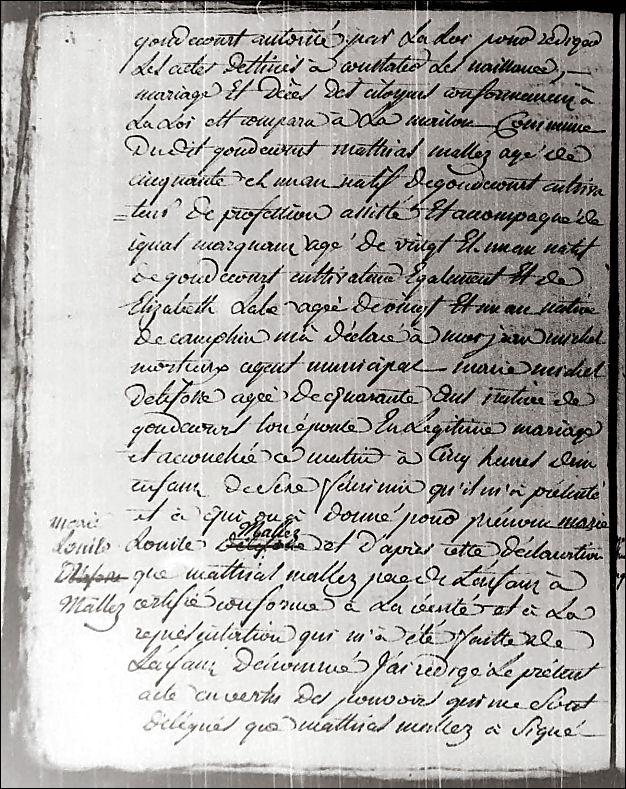 gondecourt autorisé par La Loi pour rédiger
Les actes destinés à constater Les naissances,
mariage Et Décès des citoyens conformement à
La Loi est comparu à La maison Commune
Dudit gondecourt mathias mallez agé de
cinquante et un an natif de gondecourt cultiva
=teur De profession assisté Et acompagné de
ignas marquan agé De vingt Et un an natif
De gondecourt cultivateur Egalement Et de
Elizabeth Labe agée De vingt Et un an native
De camphin m'a déclaré à moi jean michel
agent municipal marie michel
Delefosse agée De quarante ans native de
gondecourt son épouse En Legitime mariage
est accouchée ce matin à Cinq heures d'un
enfant De Sexe féminin qu'il m'a présenté
et à qui on a donné pour prénom marie
Louise Delefosse Mallez et D'après cette déclaration
marie
Louise
Delefosse
Mallez
que mathias mallez pere de L'enfant à
certifié conforme à La vérité et à La
représentation qui m'a été faitte de
L'enfant Dénommé J'ai rédigé Le présent
acte en vertu Des pouvoirs qui me sont
délégués que mathias mallez à Signé